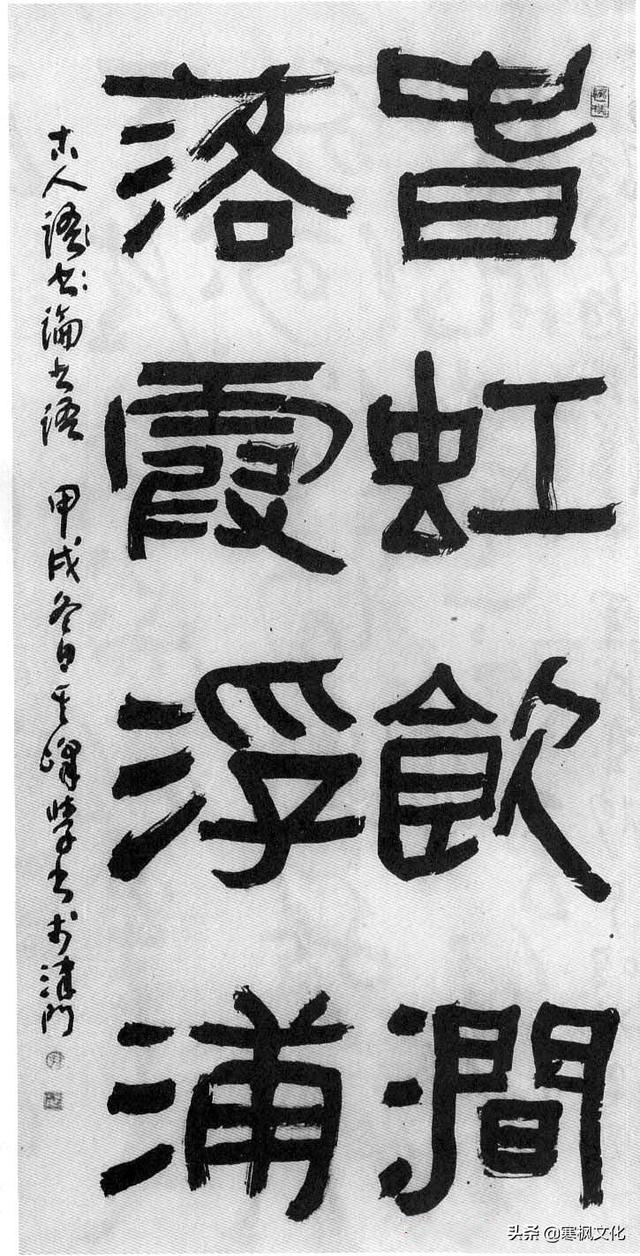 旹虹飲澗
落霞浮浦
古人書論書語 甲戌冬日書於津門
头条 @寒枫文化